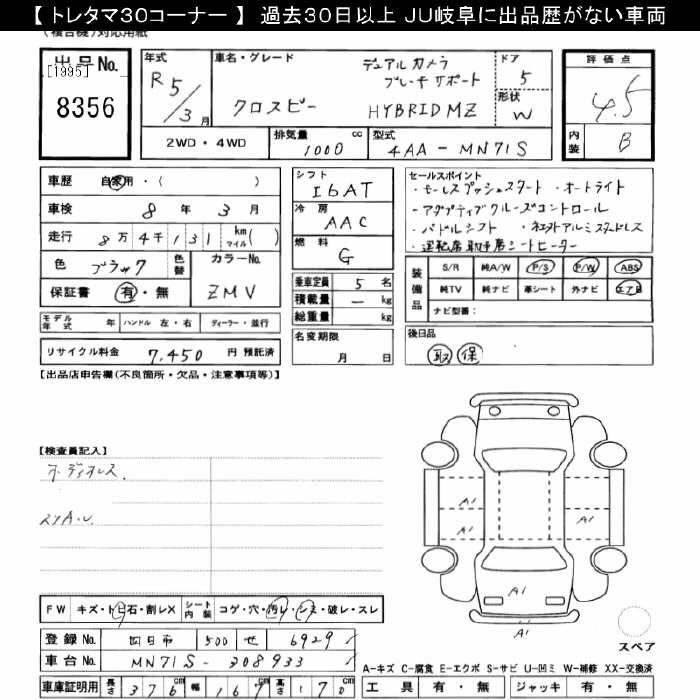 【 トレタマ30コーナー 】 過去30日以上 JU岐阜に出品歴がない車両
(複合機)対応用紙
出品No.
[1995]
8356
年式
R5/3月
車名・グレード
デュアルカメラ
ブレーキサポート
クロスビー HYBRID MZ
ドア
5
形状
W
評価点
4.5
内装 B
2WD・4WD
排気量 1000 cc
型式 4AA-MN71S
車歴 自家用・( )
車検 8年3月
走行 8万4千131 km マイル( )
色 ブラック 色替
カラーNo.
ZMV
保証書 有・無
シフト
I6AT
冷房
AAC
燃料
G
乗車定員 5名
積載量 ー kg
総重量 kg
セールスポイント
・モーレスプッシュスタート ・オートライト
・アダプティブクルーズコントロール
・パドルシフト ・社外アルミスタッドレス
・運転席助手席シートヒーター
装備品
S/R 純A/W P/S P/W ABS
純TV 純ナビ 革シート 外ナビ エアB
ナビ型番:
モデル年式 年 ハンドル 左・右 ディーラー・並行
リサイクル料金 7,450 円 預託済
名変期限
月 日
後日品
取 保
【出品店申告欄(不良箇所・欠品・注意事項等)】
【検査員記入】
オーディオレス.
スリA.U.
A1
A1
A1
A1
A1
FW キズ・トビ石・割レX シート内装 コゲ・穴・汚レ・シミ・破レ・スレ
登録No. 四日市 500 せ 6929
車台No. MN71S-308933
車庫証明用 長さ 376cm 幅 167cm 高さ 170cm
スペア
A-キズ C-腐食 E-エクボ S-サビ U-凹ミ W-補修 XX-交換済
工具 有・無 ジャッキ 有・無